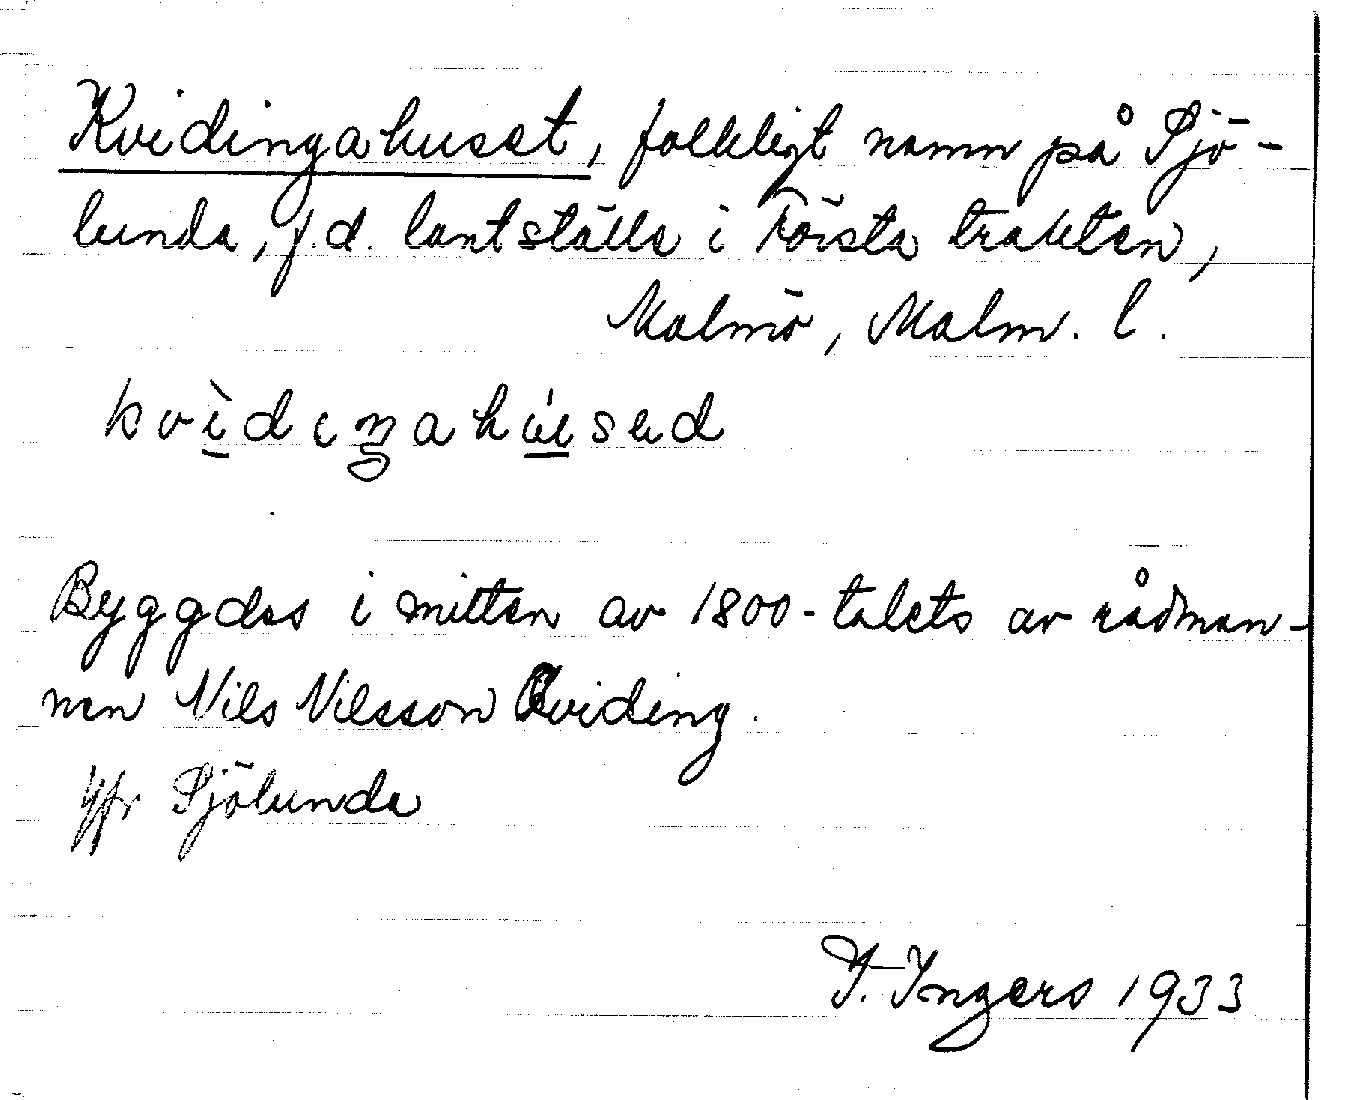 Kvidingahuset, folkligt namn på Sjö-
lunda, f.d. lantställe i Första trakten,
Malmö, Malm. l.
kvìdɩŋahúsed
Byggdes i mitten av 1800-talets av rådman-
nen Nils Nilsson Qviding.
Jfr Sjölunda
I. Ingers 1933